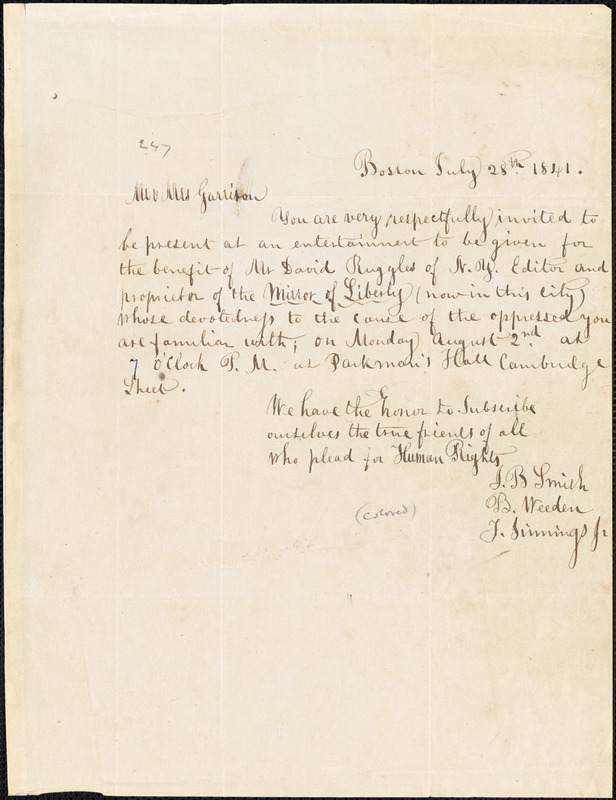 247
Boston July 28th 1841.
Mr & Mrs Garrison
You are very respectfully invited to
be present at an entertainment to be given for
the benefit of Mr David Ruggles of N.Y. Editor and
proprietor of the Mirror of Liberty (now in this city)
whose devotedness to the cause of the oppressed you
are familiar with; on Monday August 2nd at
7 O'Clock P. M. at Parkman's Hall Cambridge
Street.
We have the Honor to Subscribe
ourselves the true friends of all
who plead for Human Rights
J. B Smith
B. Weeden
T. Jinnings Jr
(colored)